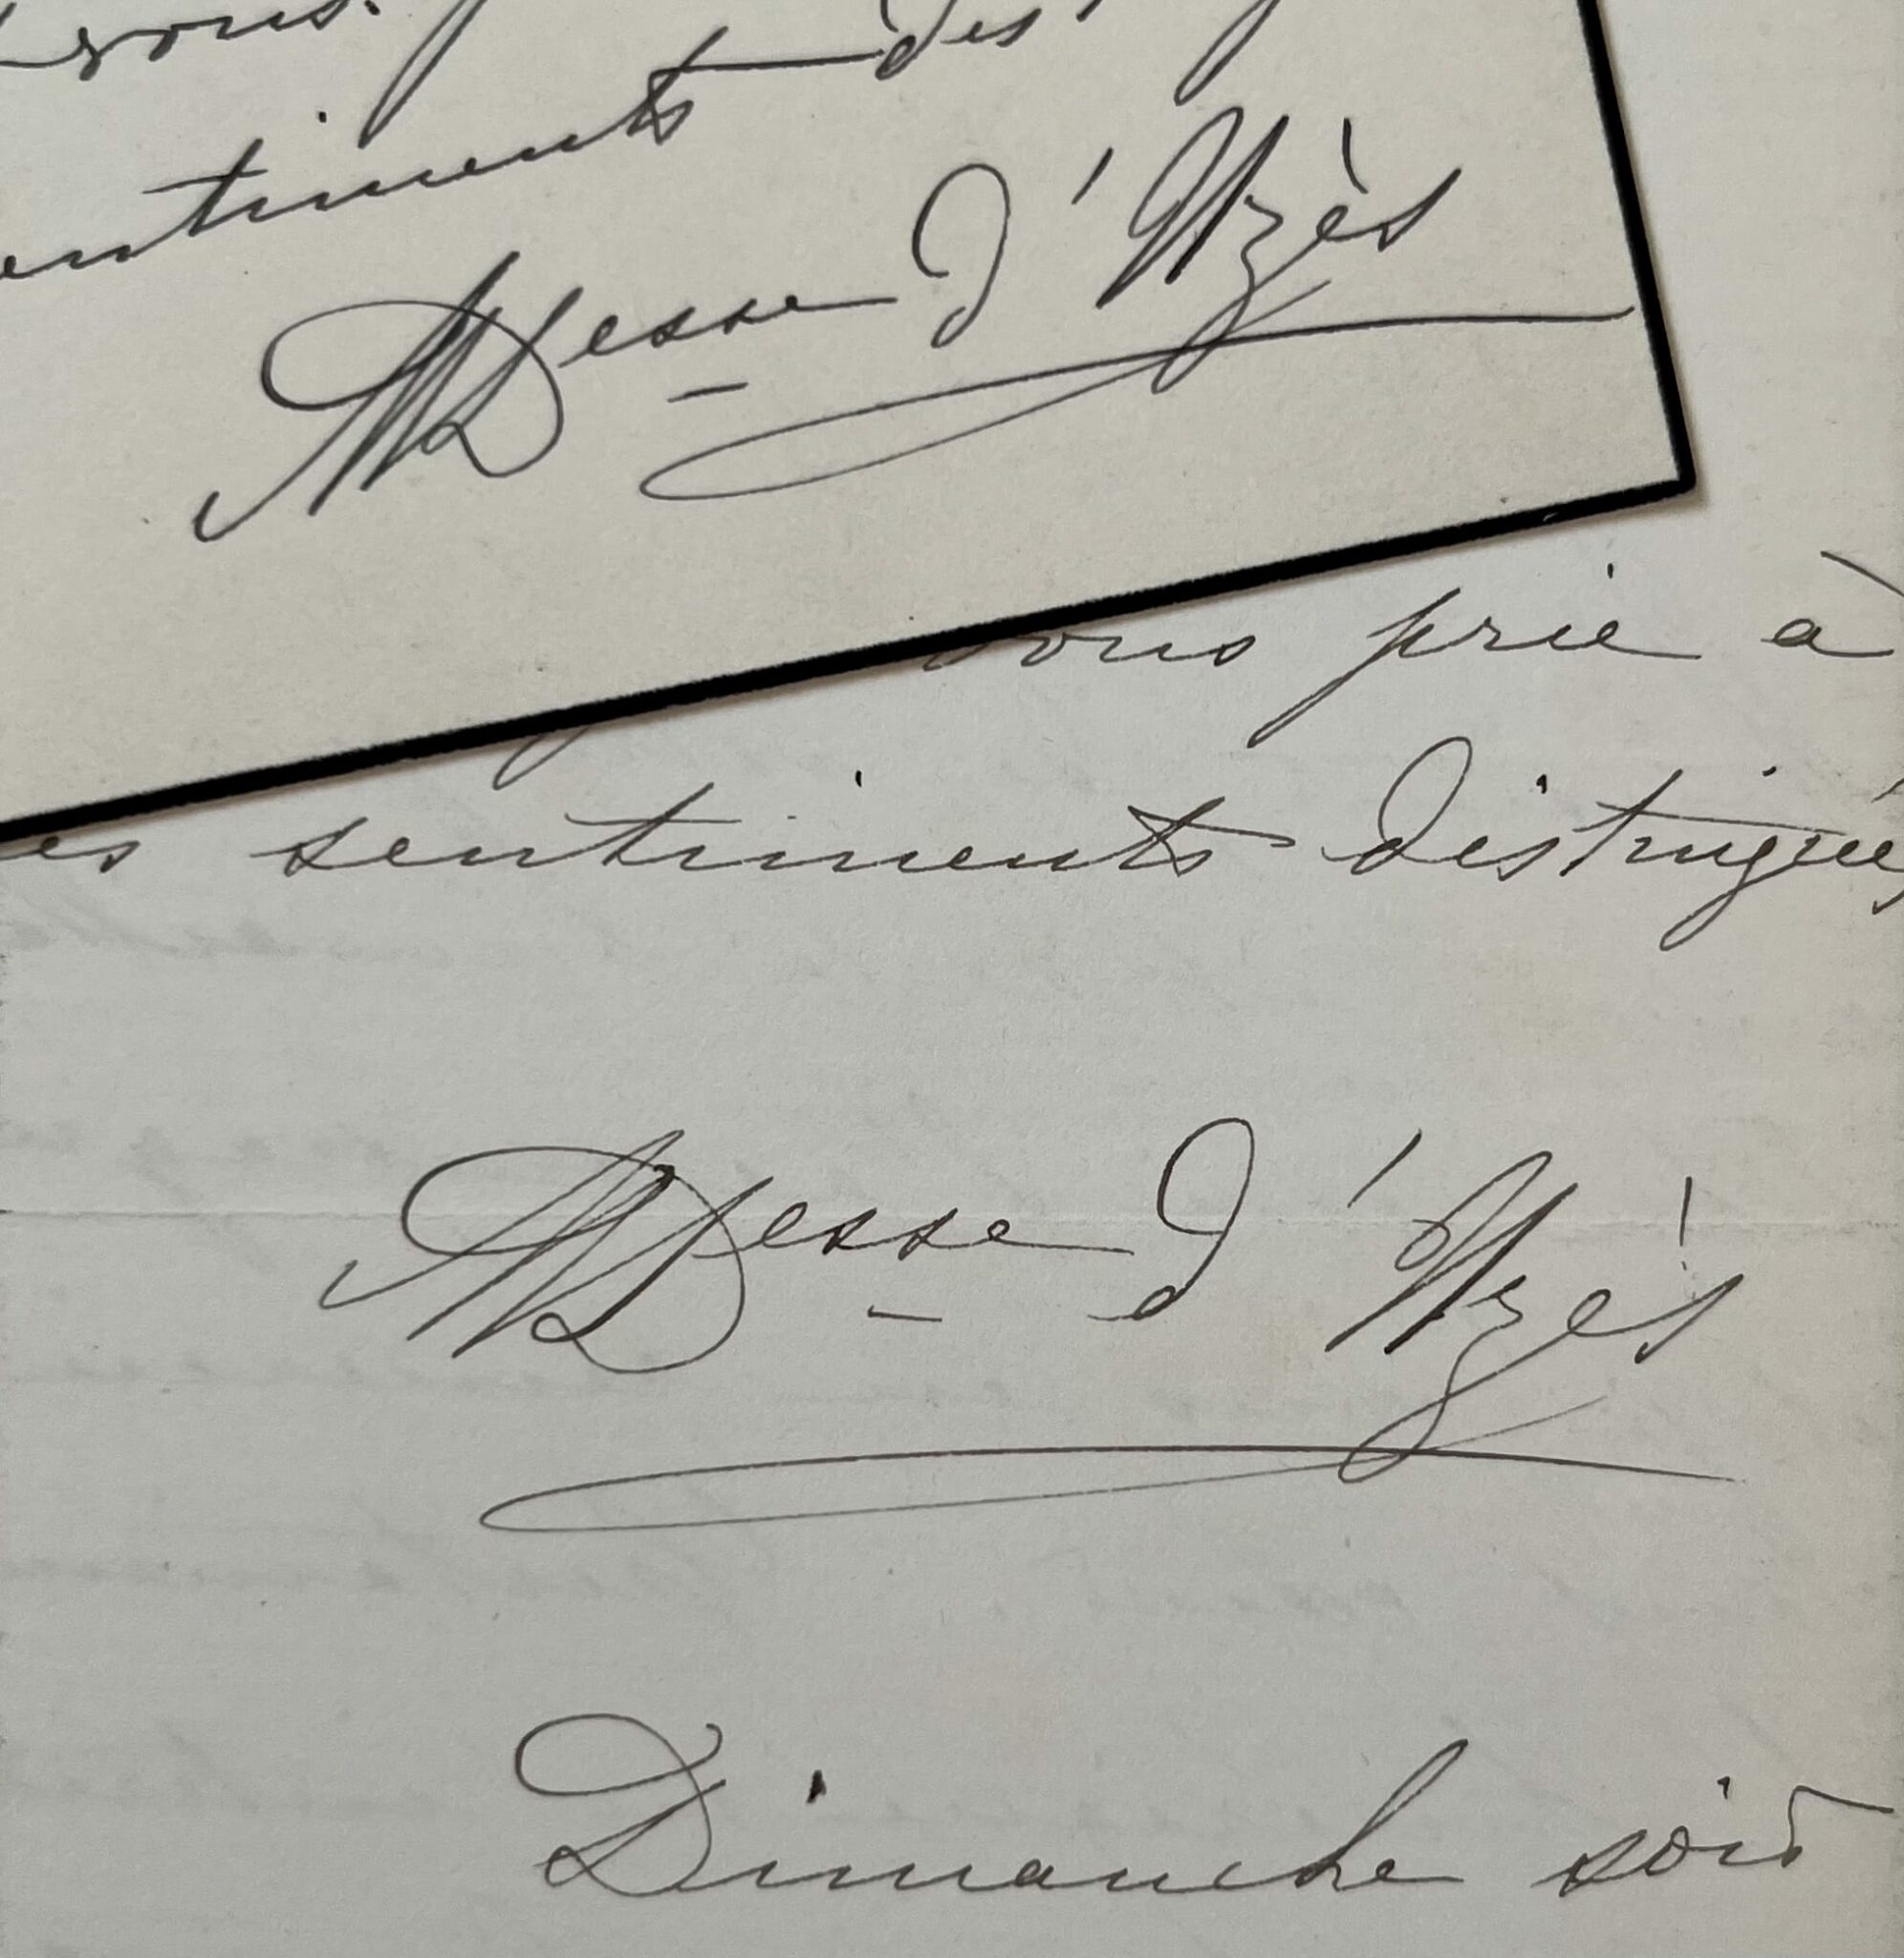 vous.
entiments des
MDesse d'Uzès
vous prie à
es sentiments distingués
MDesse d'Uzès
Dimanche soir